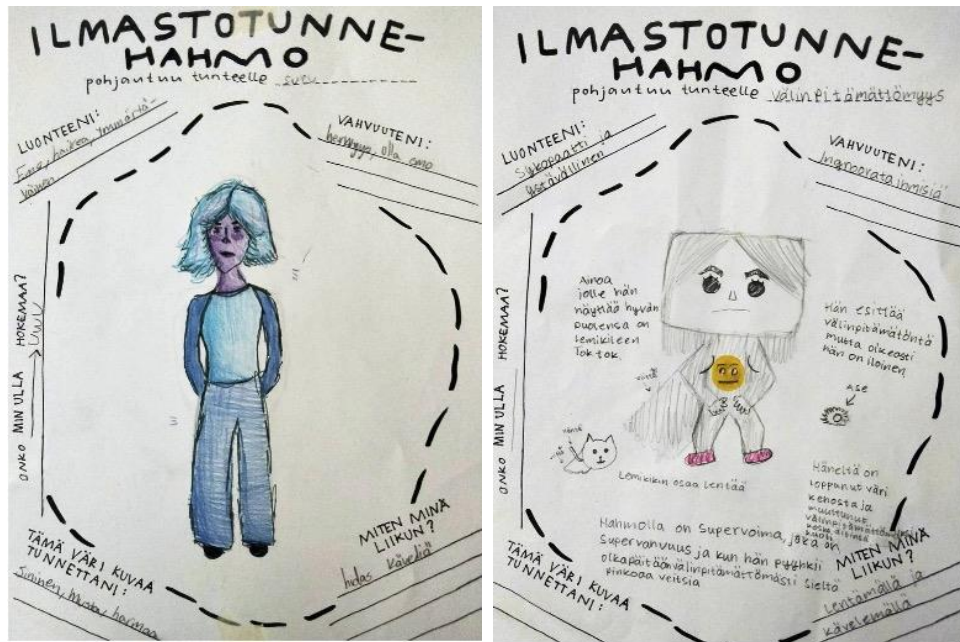 ILMASTOTUNNE-
HAHMO
pohjautuu tunteelle suru
LUONTEENI:
Emo, haikea, ymmärtä-
väinen
VAHVUUTENI:
olla emo
ONKO MINULLA HOKEMAA?
TÄMÄ VÄRI KUVAA
TUNNETTANI:
Sininen, musta, harmaa
MITEN MINÄ
LIIKUN?
hidas kävelijä
ILMASTOTUNNE-
HAHMO
pohjautuu tunteelle välinpitämättömyys
LUONTEENI:
Sykopaatti ja
ystävällinen
VAHVUUTENI:
Ingnoorata ihmisiä
ONKO MINULLA HOKEMAA?
Ainoa
jolle hän
näyttää hyvän
puolensa on
lemikileen
Tok tok.
Hän esittää
välinpitämätöntä
mutta oikeasti
hän on iloinen.
ase
viitta
Lemikikin osaa lentää
Häneltä on
loppunut väri
kehosta ja
muuttunut
Hahmolla on Supervoima, joka on
Supervahvuus ja kun hän pyyhkii
olkapäitään välinpitämättömästi sieltä
sinkoaa veitsiä
TÄMÄ VÄRI KUVAA
TUNNETTANI:
MITEN MINÄ
LIIKUN?
Lentämällä ja
kävelemällä